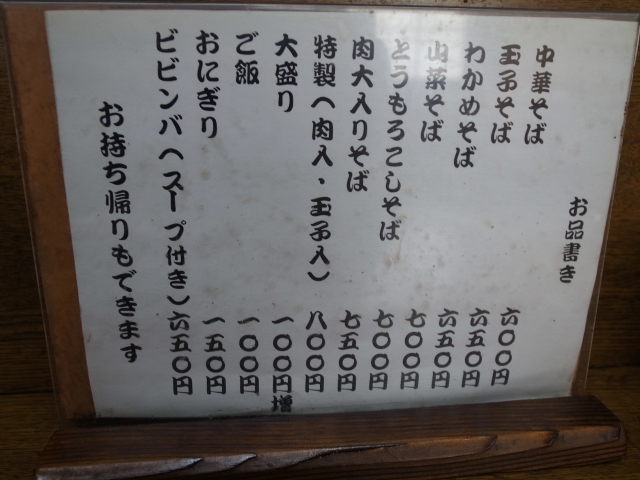 お品書き
中華そば 六〇〇円
玉子そば 六五〇円
わかめそば 六五〇円
山菜そば 七〇〇円
とうもろこしそば 七〇〇円
肉大入りそば 七五〇円
特製(肉入・玉子入) 八〇〇円
大盛り 一〇〇円増
ご飯 一〇〇円
おにぎり 一五〇円
ビビンバ(スープ付き) 六五〇円
お持ち帰りもできます